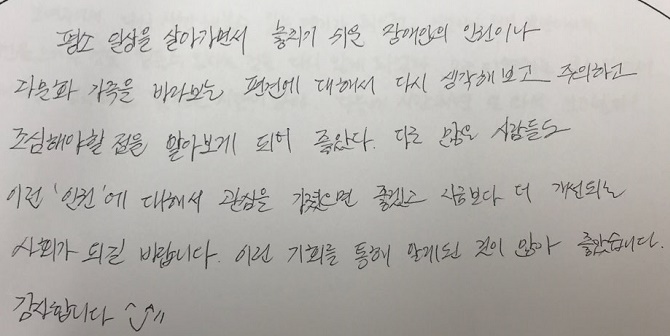 평소 일상을 살아가면서 놓치기 쉬운 장애인의 인권이나
다문화 가족을 바라보는 편견에 대해서 다시 생각해보고 주의하고
조심해야할 점을 알아보게 되어 좋았다. 다른 많은 사람들도
이런 '인권'에 대해서 관심을 가졌으면 좋겠고 지금보다 더 개선되는
사회가 되길 바랍니다. 이런 기회를 통해 알게된 것이 많아 좋았습니다.
감사합니다